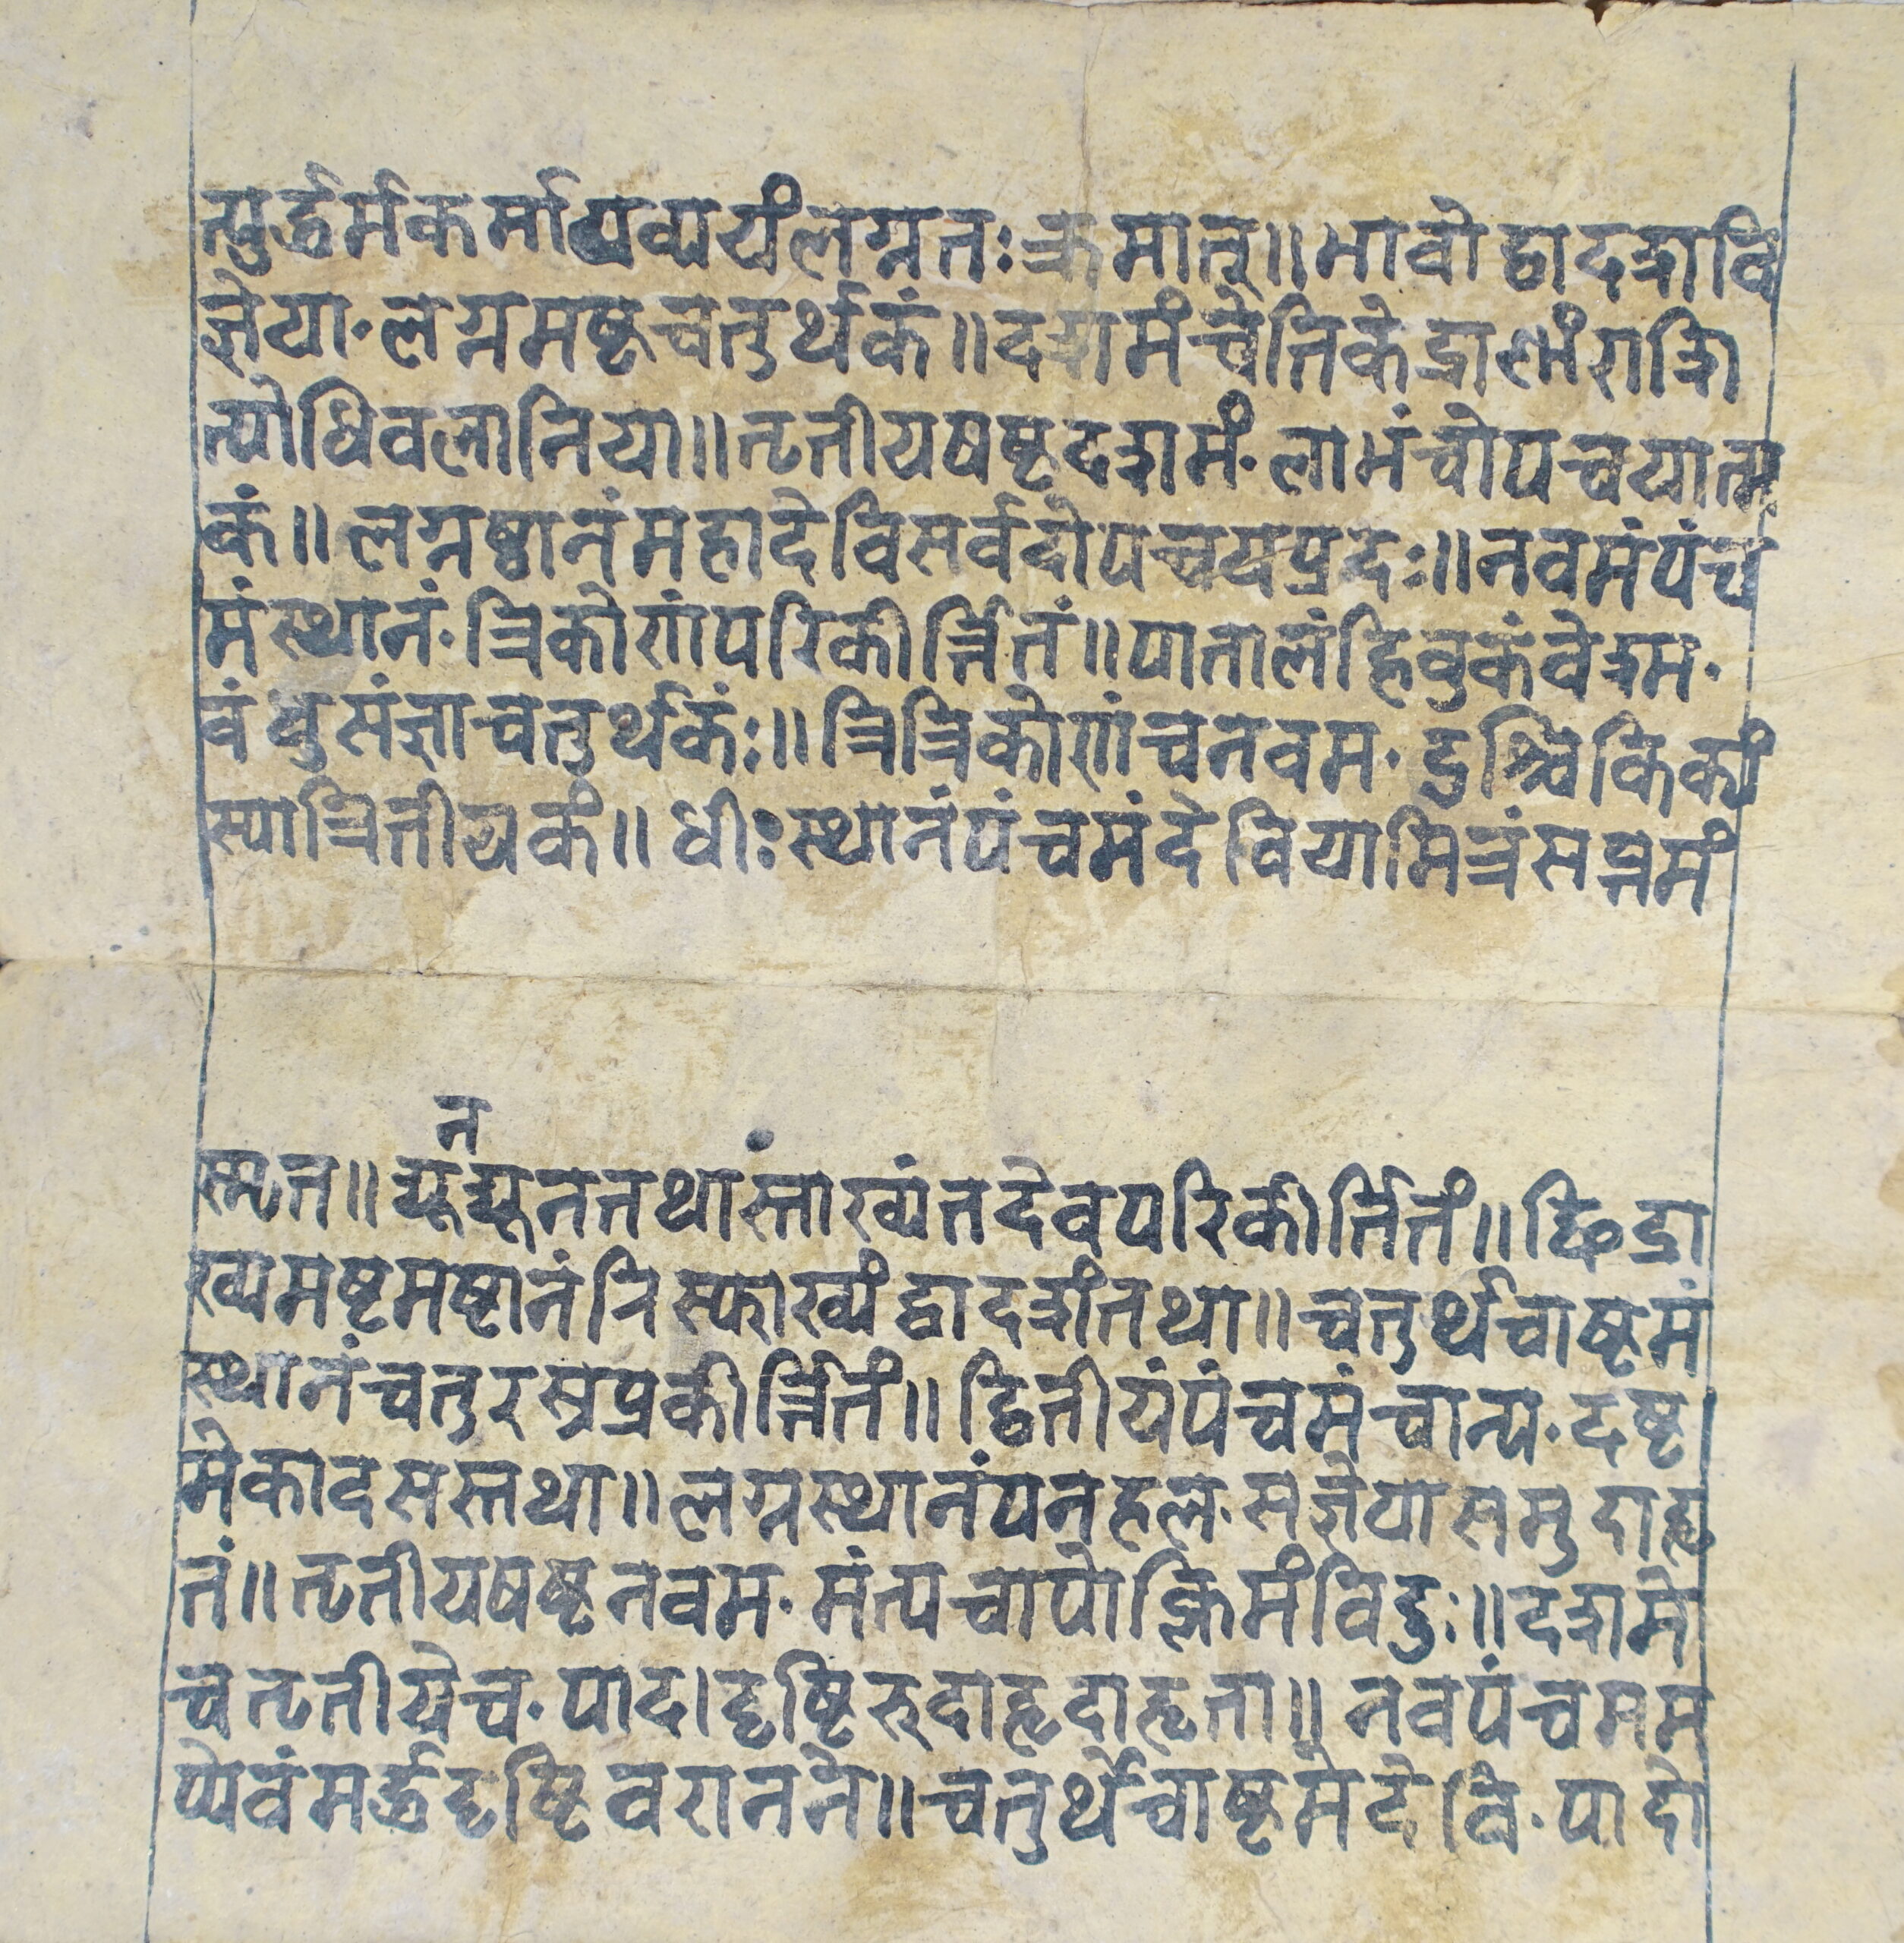 त्युर्द्धर्मकर्माय्यव्ययंलग्नतःक्रमात्॥भावोद्वादशवि
ज्ञेया॰लग्नमष्टचतुर्थकं॥दशमंचेतिकेद्राणांराशि
त्योधिवलानिया॥तृतीयषष्टदशमं॰लाभंचोपचयात्म
कं॥लग्नष्ठानंमहादेविसर्वदोपचयप्रदः॥नवमंपंच
मंस्थानं॰त्रिकोणंपरिकीर्त्तितं॥पातालंहिवुकंवेश्म॰
वंधुसंज्ञाचतुर्थकंः॥त्रित्रिकोणंचनवम॰दुश्चिकिकां
स्यात्रितीयकं॥धीःस्थानंपंचमंदेवियामित्रंसप्तमं
स्मृत॥द्यूनद्यूनतथांस्ताख्यंतदेवपरिकीर्तितं॥छिद्रा
ख्यमष्टमष्टानंनिस्फाख्यंद्वादशंतथा॥चतुर्थचाष्टमं
स्थानंचतुरस्रप्रकीर्त्तितं॥द्वितीयंपंचमंचान्य॰दष्ट
मेकादसस्तथा॥लग्नस्थानंपनहल॰सज्ञेयासमुदाहृ
तं॥तृतीयषष्टनवम॰मंत्यचापोक्लिमंविदुः॥दशमे
चतृतीयेच॰पाद।दृष्टिरुदाहृदाहृता॥नवपंचमम
प्येवंमर्द्धदृष्टिवरानने॥चतुर्थेचाष्टमेदेवि॰पादो